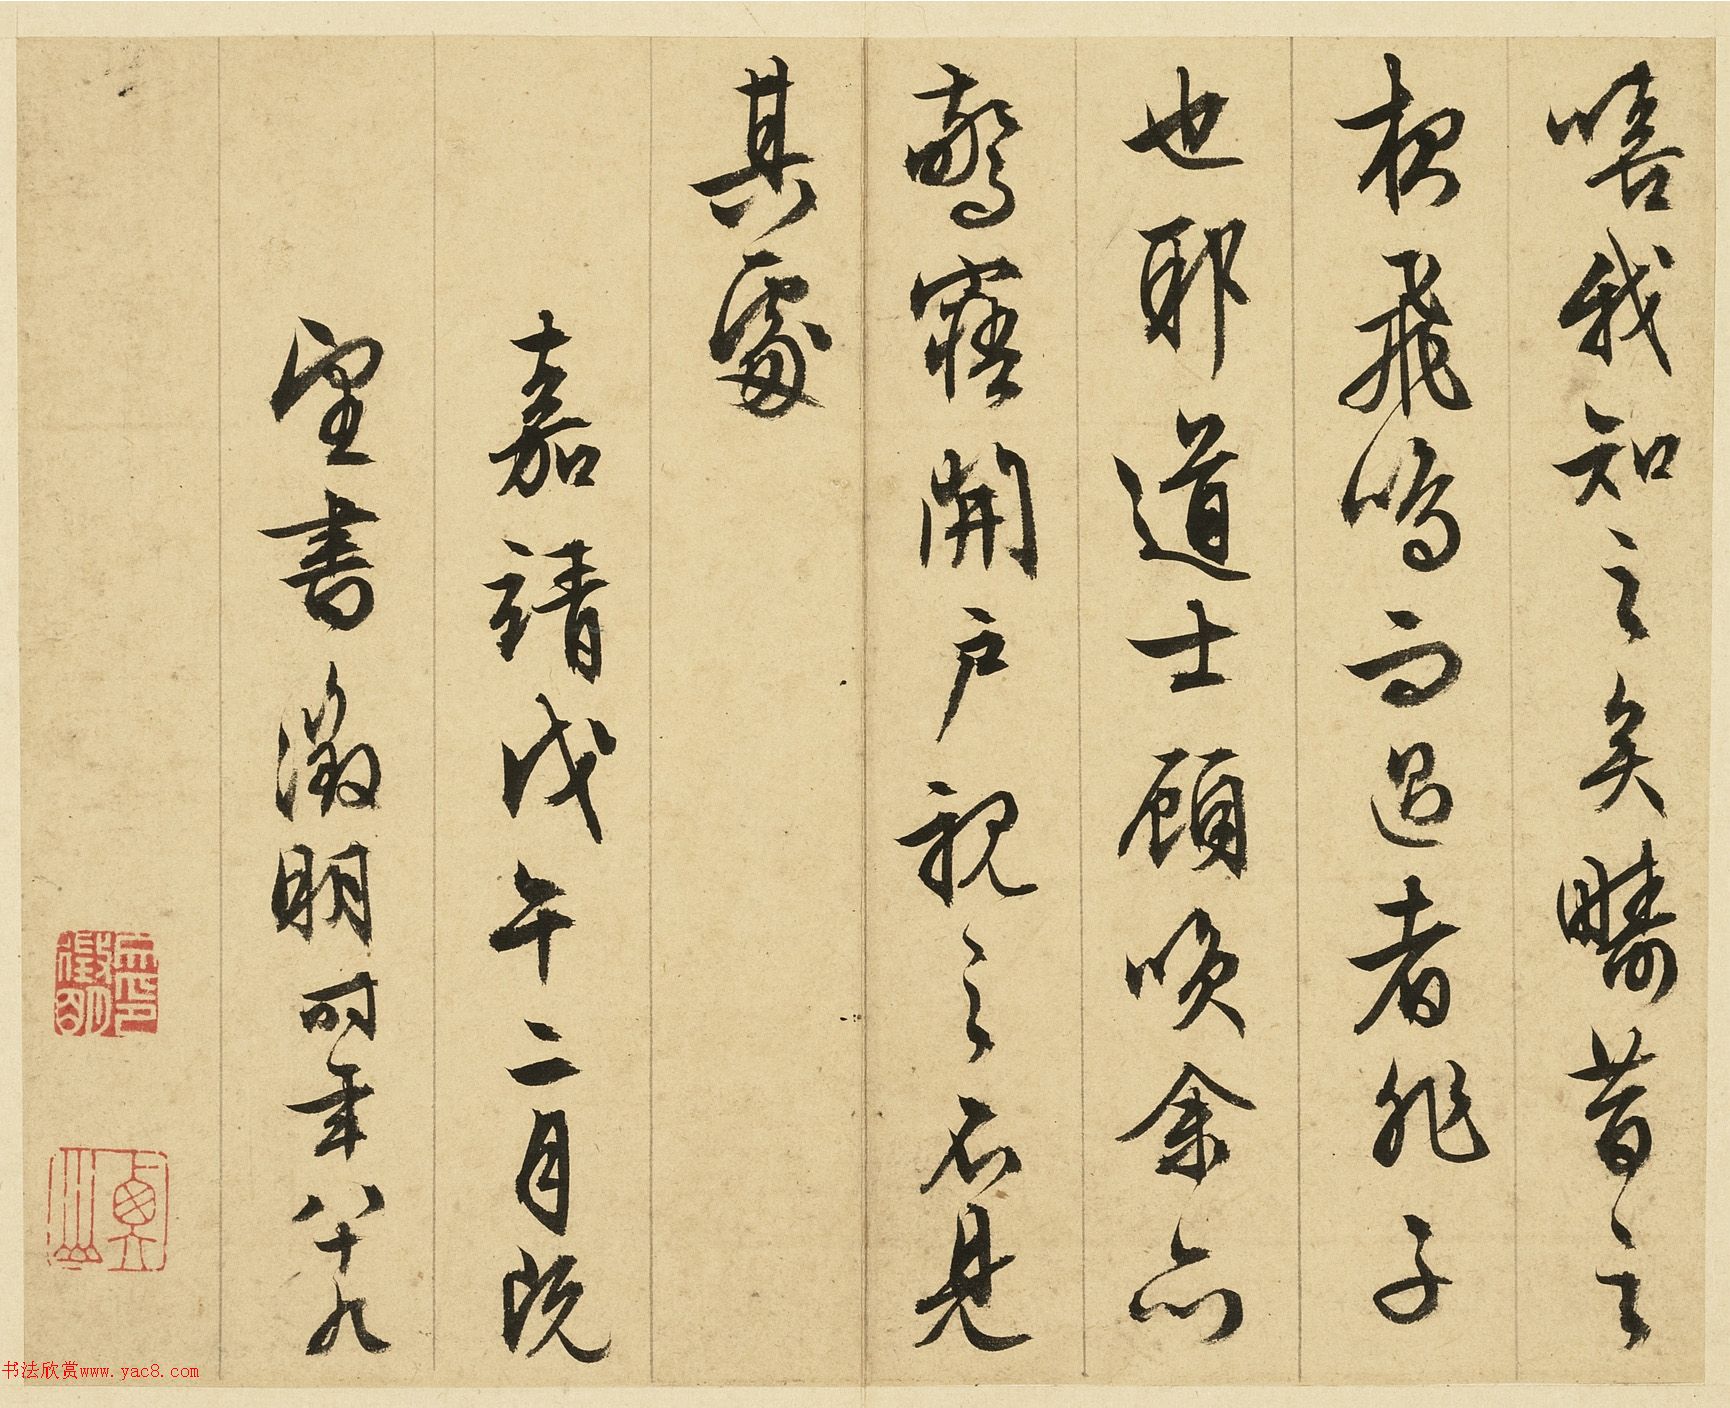 嘻我知之矣疇昔之
夜飛鳴而過者非子
也耶道士顧笑余亦
驚寤開戶視之不見
其處
嘉靖戊午二月既
望書徵明時年八十九
徵明印
書法欣赏www.yac8.com